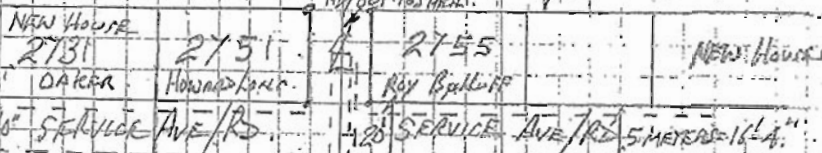 NEW HOUSE
2731
DAKER
2751
HOWARD LONG.
2755
ROY
NEW HOUSE
SERVICE AVE/RD.
20' SERVICE AVE/RD 5 METERS=16'-4"